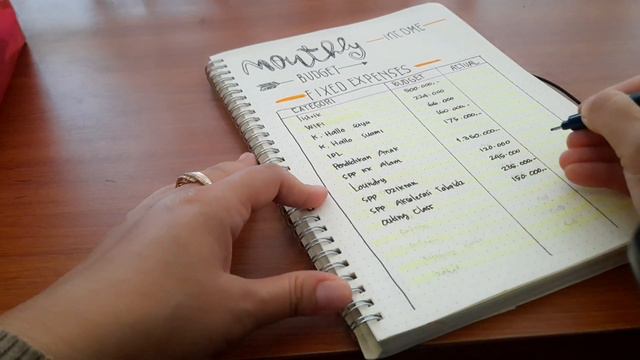 Monthly
BUDGET
INCOME
FIXED EXPENSES
CATEGORI BUDGET ACTUAL
listrik 500.000,-
WIFI 224.000
K. Hallo saya 66.000
K. Hallo suami 160.000,-
IPL 175.000,-
Pendidikan Anak
SPP KK Alam 1.350.000,-
Laundry 120.000
SPP Dzikran 245.000
SPP Akselerasi 235.000,-
Outing class 150.000,-